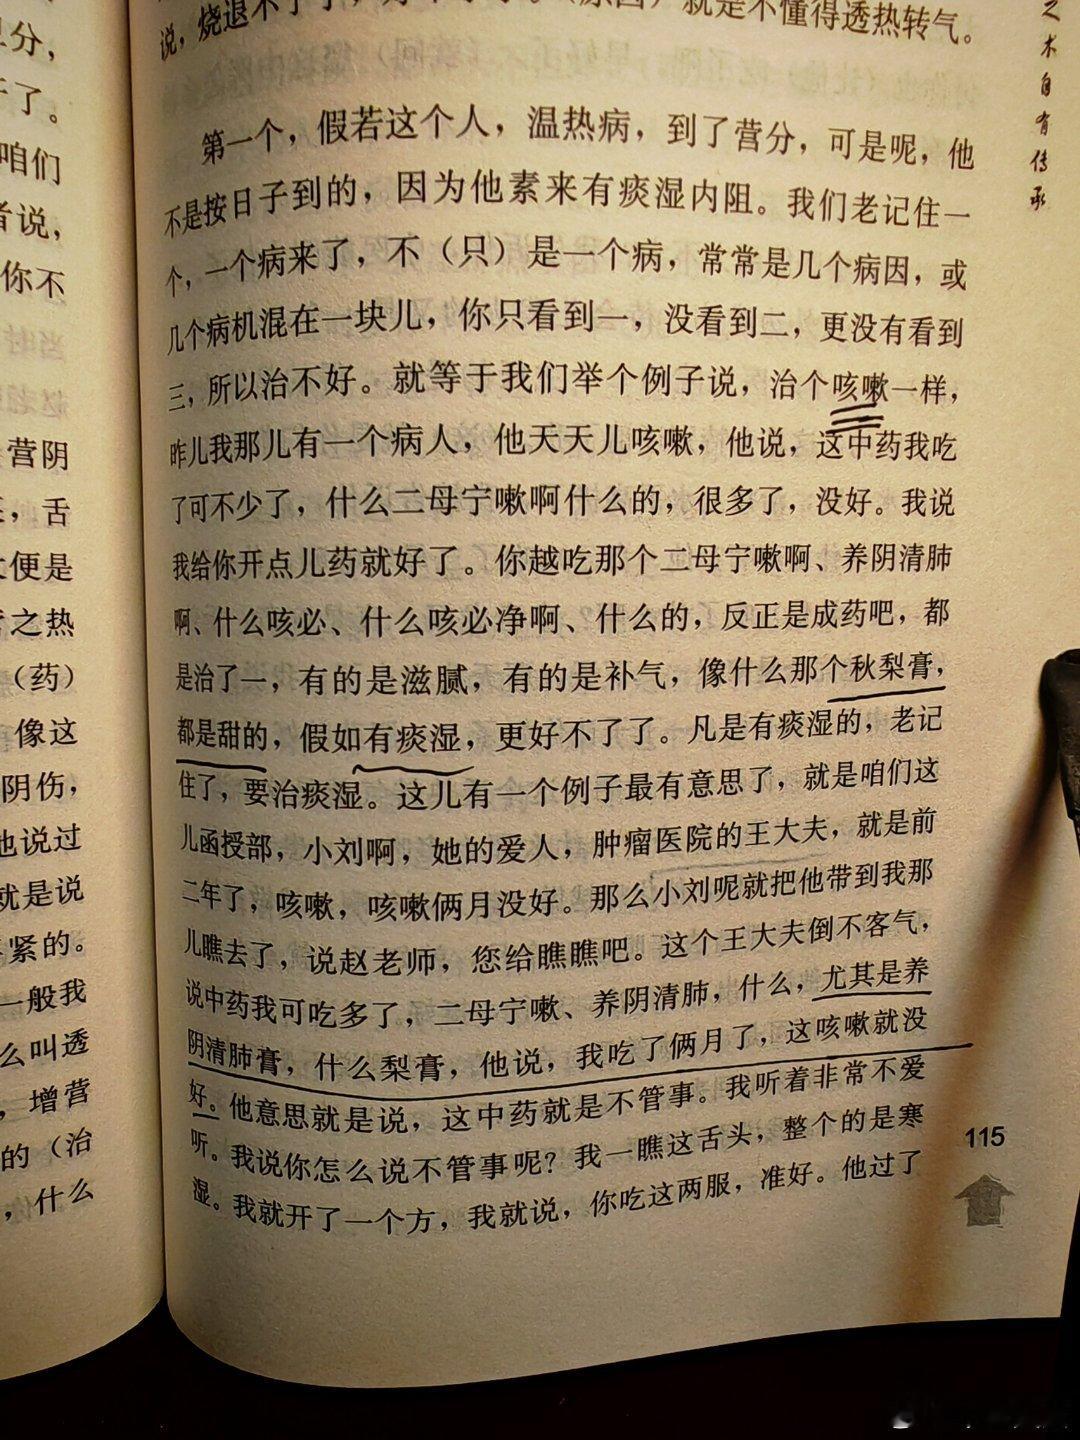 分，
了。
咱们
者说，
你不
营阴
，舌
便是
之热
（药）
像这
阴伤，
他说过
就是说
紧的。
一般我
么叫透
，增营
的（治
，什么
说，烧退不了了，就是不懂得透热转气。
第一个，假若这个人，温热病，到了营分，可是呢，他
不是按日子到的，因为他素来有痰湿内阻。我们老记住一
个，一个病来了，不（只）是一个病，常常是几个病因，或
几个病机混在一块儿，你只看到一，没看到二，更没有看到
三，所以治不好。就等于我们举个例子说，治个咳嗽一样，
昨儿我那儿有一个病人，他天天儿咳嗽，他说，这中药我吃
了可不少了，什么二母宁嗽啊什么的，很多了，没好。我说
我给你开点儿药就好了。你越吃那个二母宁嗽啊、养阴清肺
啊、什么咳必、什么咳必净啊、什么的，反正是成药吧，都
是治了一，有的是滋腻，有的是补气，像什么那个秋梨膏，
都是甜的，假如有痰湿，更好不了了。凡是有痰湿的，老记
住了，要治痰湿。这儿有一个例子最有意思了，就是咱们这
儿函授部，小刘啊，她的爱人，肿瘤医院的王大夫，就是前
二年了，咳嗽，咳嗽俩月没好。那么小刘呢就把他带到我那
儿瞧去了，说赵老师，您给瞧瞧吧。这个王大夫倒不客气，
说中药我可吃多了，二母宁嗽、养阴清肺，什么，尤其是养
阴清肺膏，什么梨膏，他说，我吃了俩月了，这咳嗽就没
好。他意思就是说，这中药就是不管事。我听着非常不爱
听。我说你怎么说不管事呢？我一瞧这舌头，整个的是寒
湿。我就开了一个方，我就说，你吃这两服，准好。他过了
之术自有传承
115